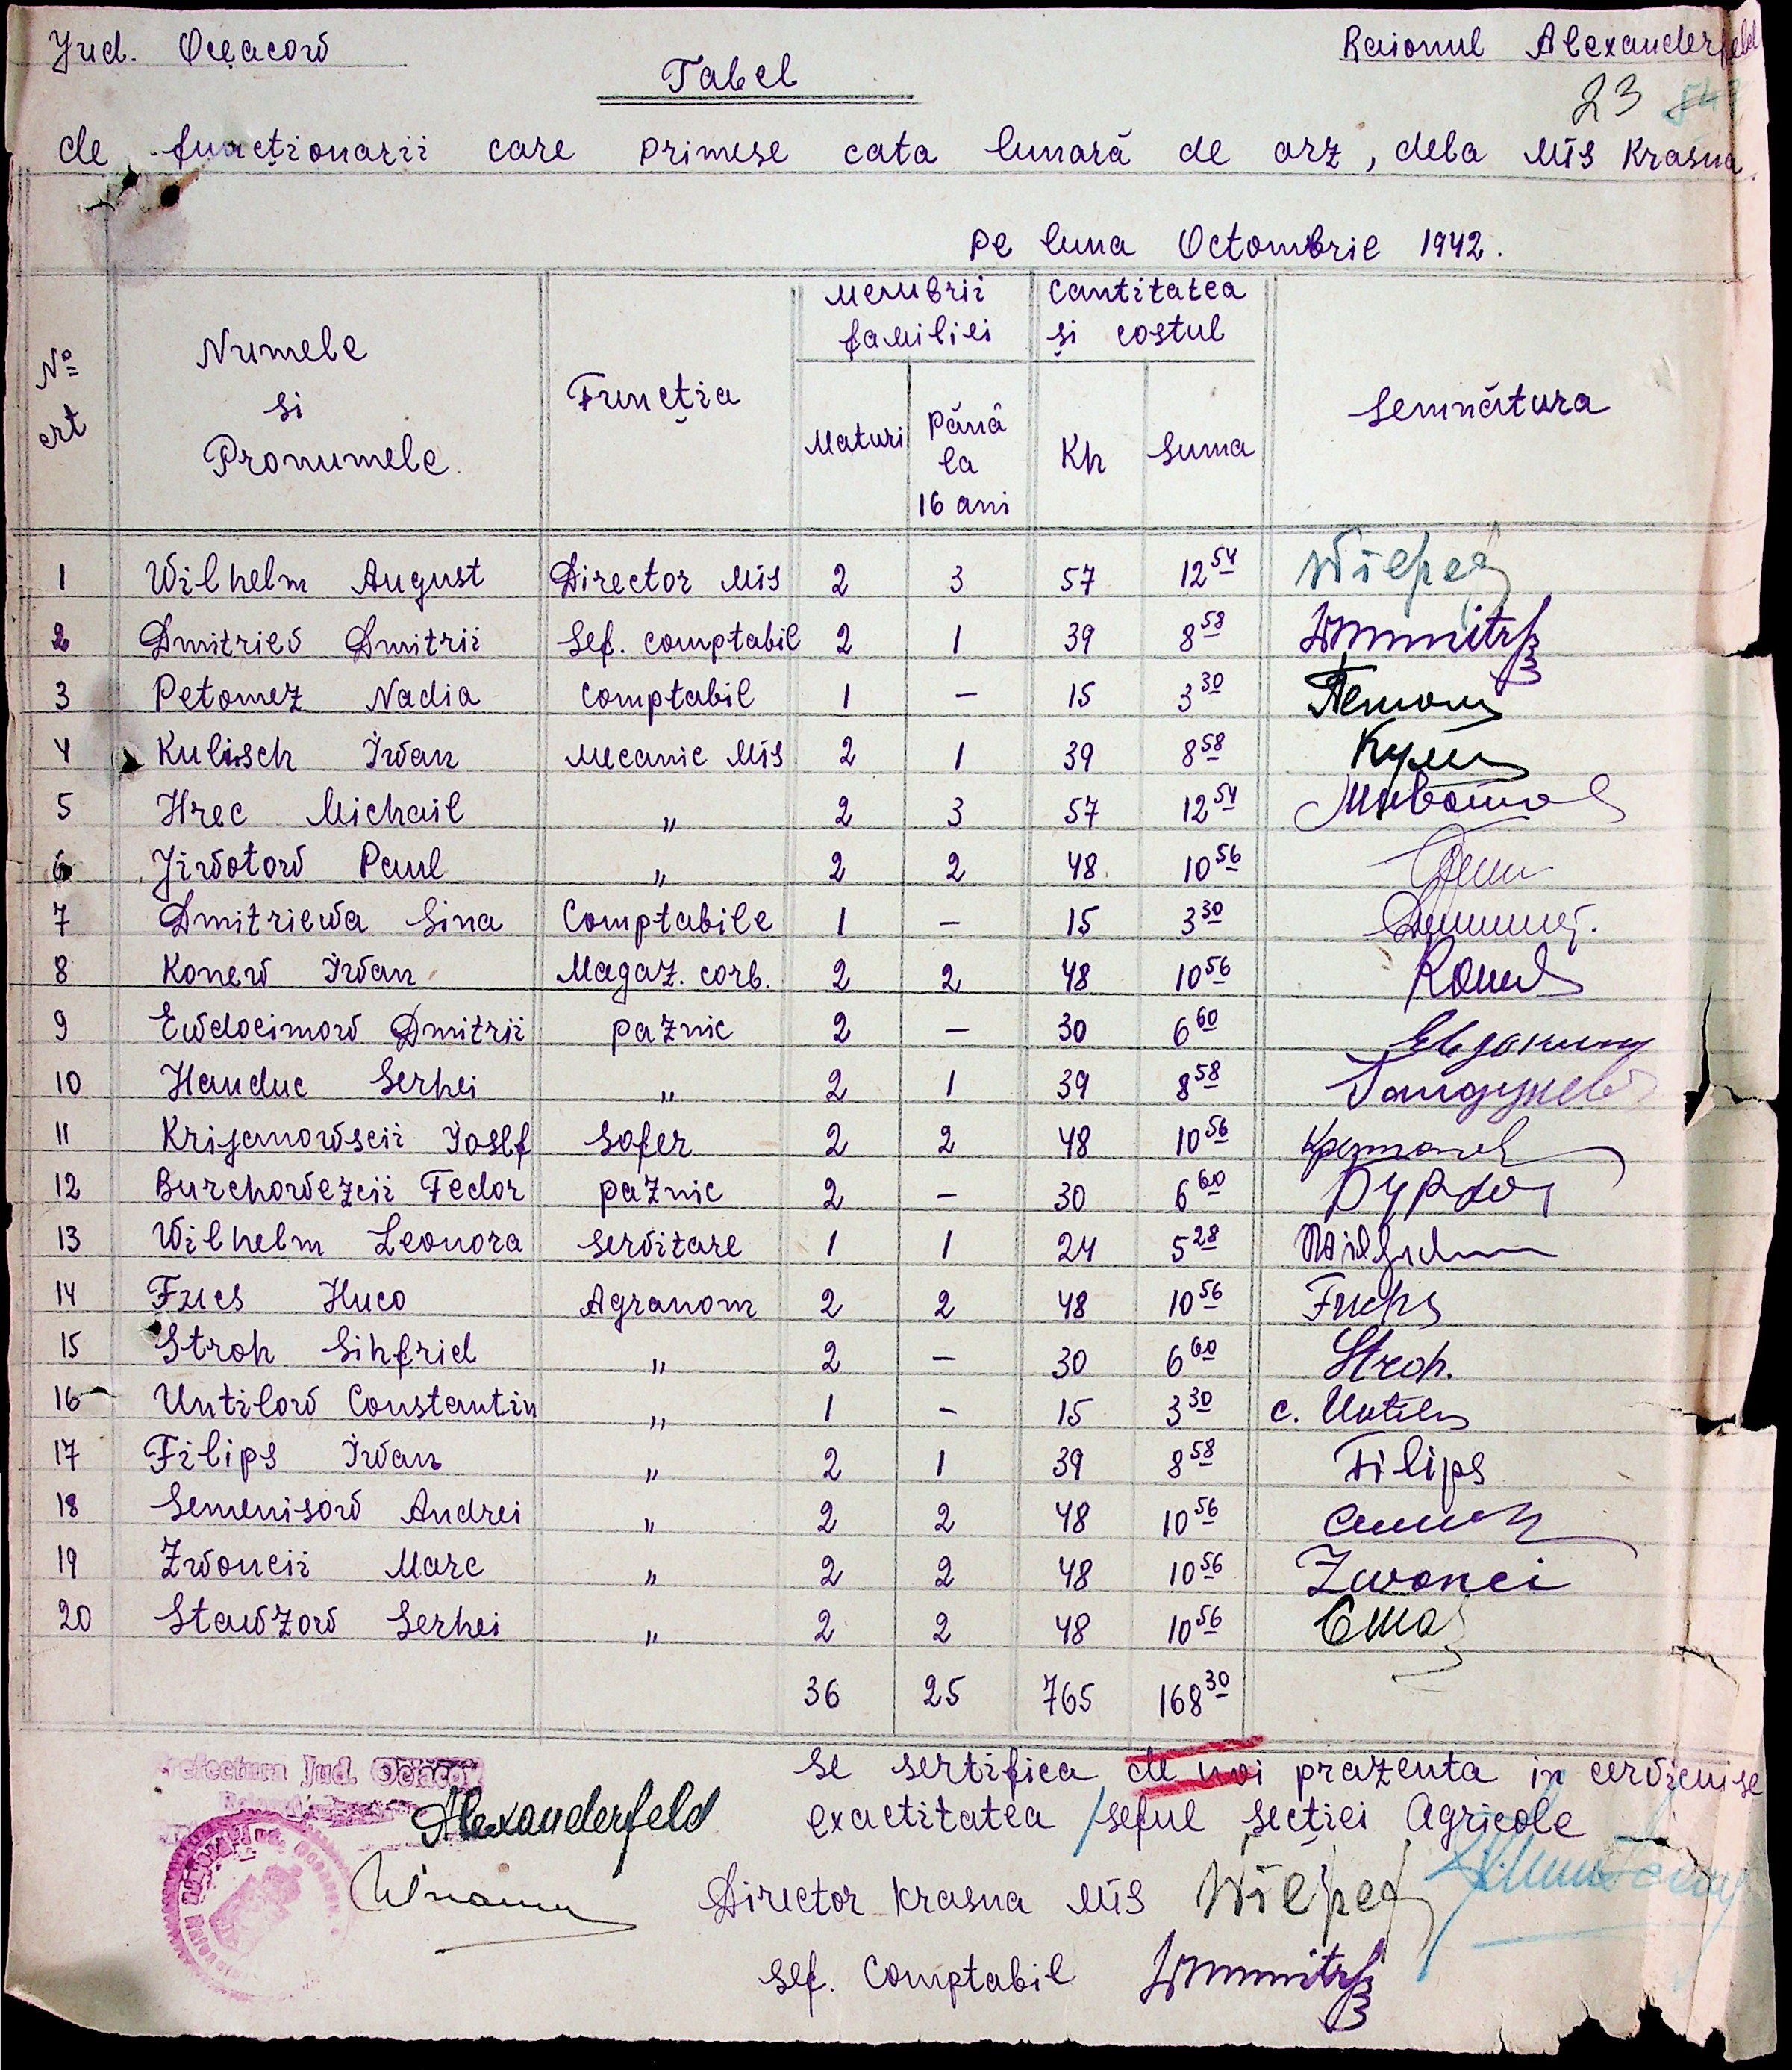 Jud. Oceacow
Raionul Alexanderfeld
Tabel
23
de funcționarii care primesc cata lunară de orz, dela MTS Krasna.
pe luna Octombrie 1942.
№ crt
Numele si Pronumele
Funcția
Membrii familiei
Maturi
Până la 16 ani
Cantitatea și costul
Kh
Suma
Semnătura
1 Wilhelm August Director MTS 2 3 57 12 54
2 Dmitriev Dmitrii Sef. comptabil 2 1 39 8 58
3 Petomez Nadia Comptabil 1 – 15 3 30
4 Kulisch Iwan Mecanic MTS 2 1 39 8 58
5 Hrec Michail " 2 3 57 12 54
6 Jiwotow Paul " 2 2 48 10 56
7 Dmitriewa Sina Comptabile 1 – 15 3 30
8 Konew Iwan Magaz. corb. 2 2 48 10 56
9 Ewdocimow Dmitrii paznic 2 – 30 6 60
10 Handuc Serhei " 2 1 39 8 58
11 Krijanowscii Iosef Sofer 2 2 48 10 56
12 Burchowezcii Fedor paznic 2 – 30 6 60
13 Wilhelm Leonora servitare 1 1 24 5 28
14 Fucs Huco Agranom 2 2 48 10 56 Fuchs
15 Stroh Sihfrid " 2 – 30 6 60 Stroh.
16 Untilow Constantin " 1 – 15 3 30 c. Untilo
17 Filips Iwan " 2 1 39 8 58 Filips
18 Semenisow Andrei " 2 2 48 10 56
19 Zwoncii Marc " 2 2 48 10 56 Zwonci
20 Stawzow Serhei " 2 2 48 10 56
36 25 765 168 30
Prefectura Jud. Oceacov
Alexanderfeld
se sertifica de noi prazenta in cervici si
exactitatea / seful Secției Agricole
Director Krasna MTS
Sef. Comptabil